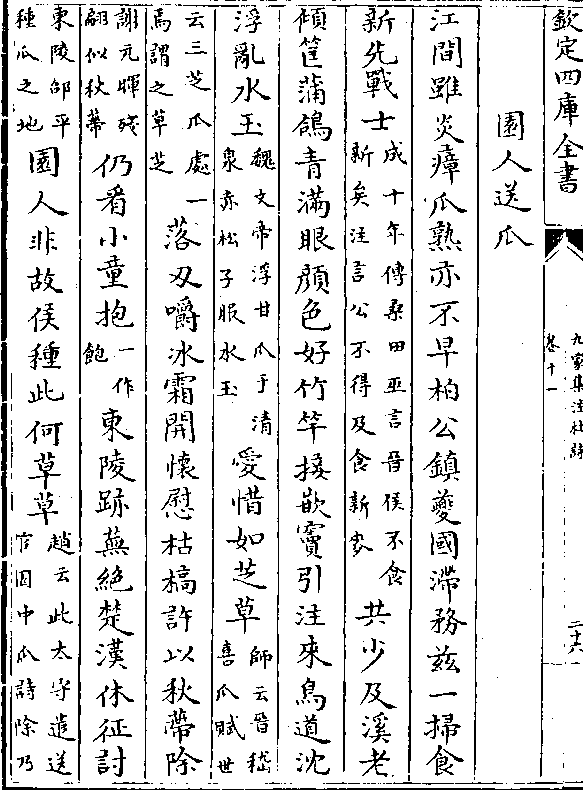 欽定四庫全書
九家集注杜詩
卷十一
二十六
園人送瓜
江間雖炎瘴瓜熟亦不早柏公鎮夔國滯務兹一掃食
新先戰士成十年傳桑田巫言晉侯不食新矣注言公不得及食新麥共少及溪老
傾筐蒲鴿青滿眼顔色好竹竿接嵌竇引注來鳥道沈
浮亂水玉魏文帝浮甘瓜于清泉赤松子服水玉愛惜如芝草師云晉嵇喜瓜賦世
云三芝瓜處一焉謂之草芝落刃嚼冰霜開懷慰枯槁許以秋蔕除
謝元暉殘翮似秋蔕仍看小童抱一作飽東陵跡蕪絶楚漢休征討
東陵邵平種瓜之地園人非故侯種此何草草趙云此太守遣送官園中瓜詩除乃